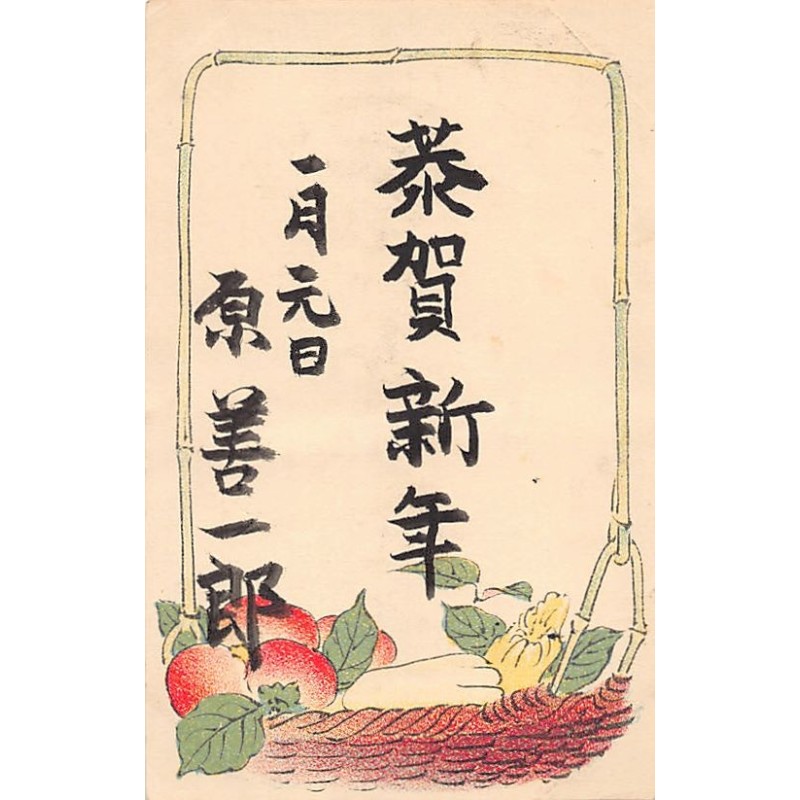 恭賀新年
一月元日
原善一郎